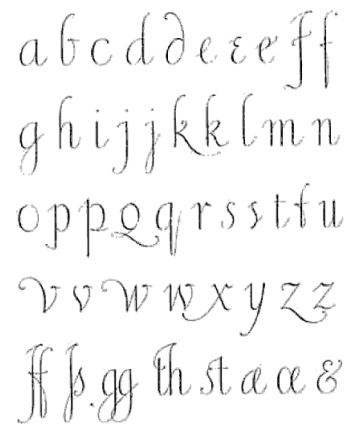 a b c d d e ε e f f
g h i j j k k l m n
o p p q q r s s t t u
v v w w x y z z
ff fs gg th st æ œ &